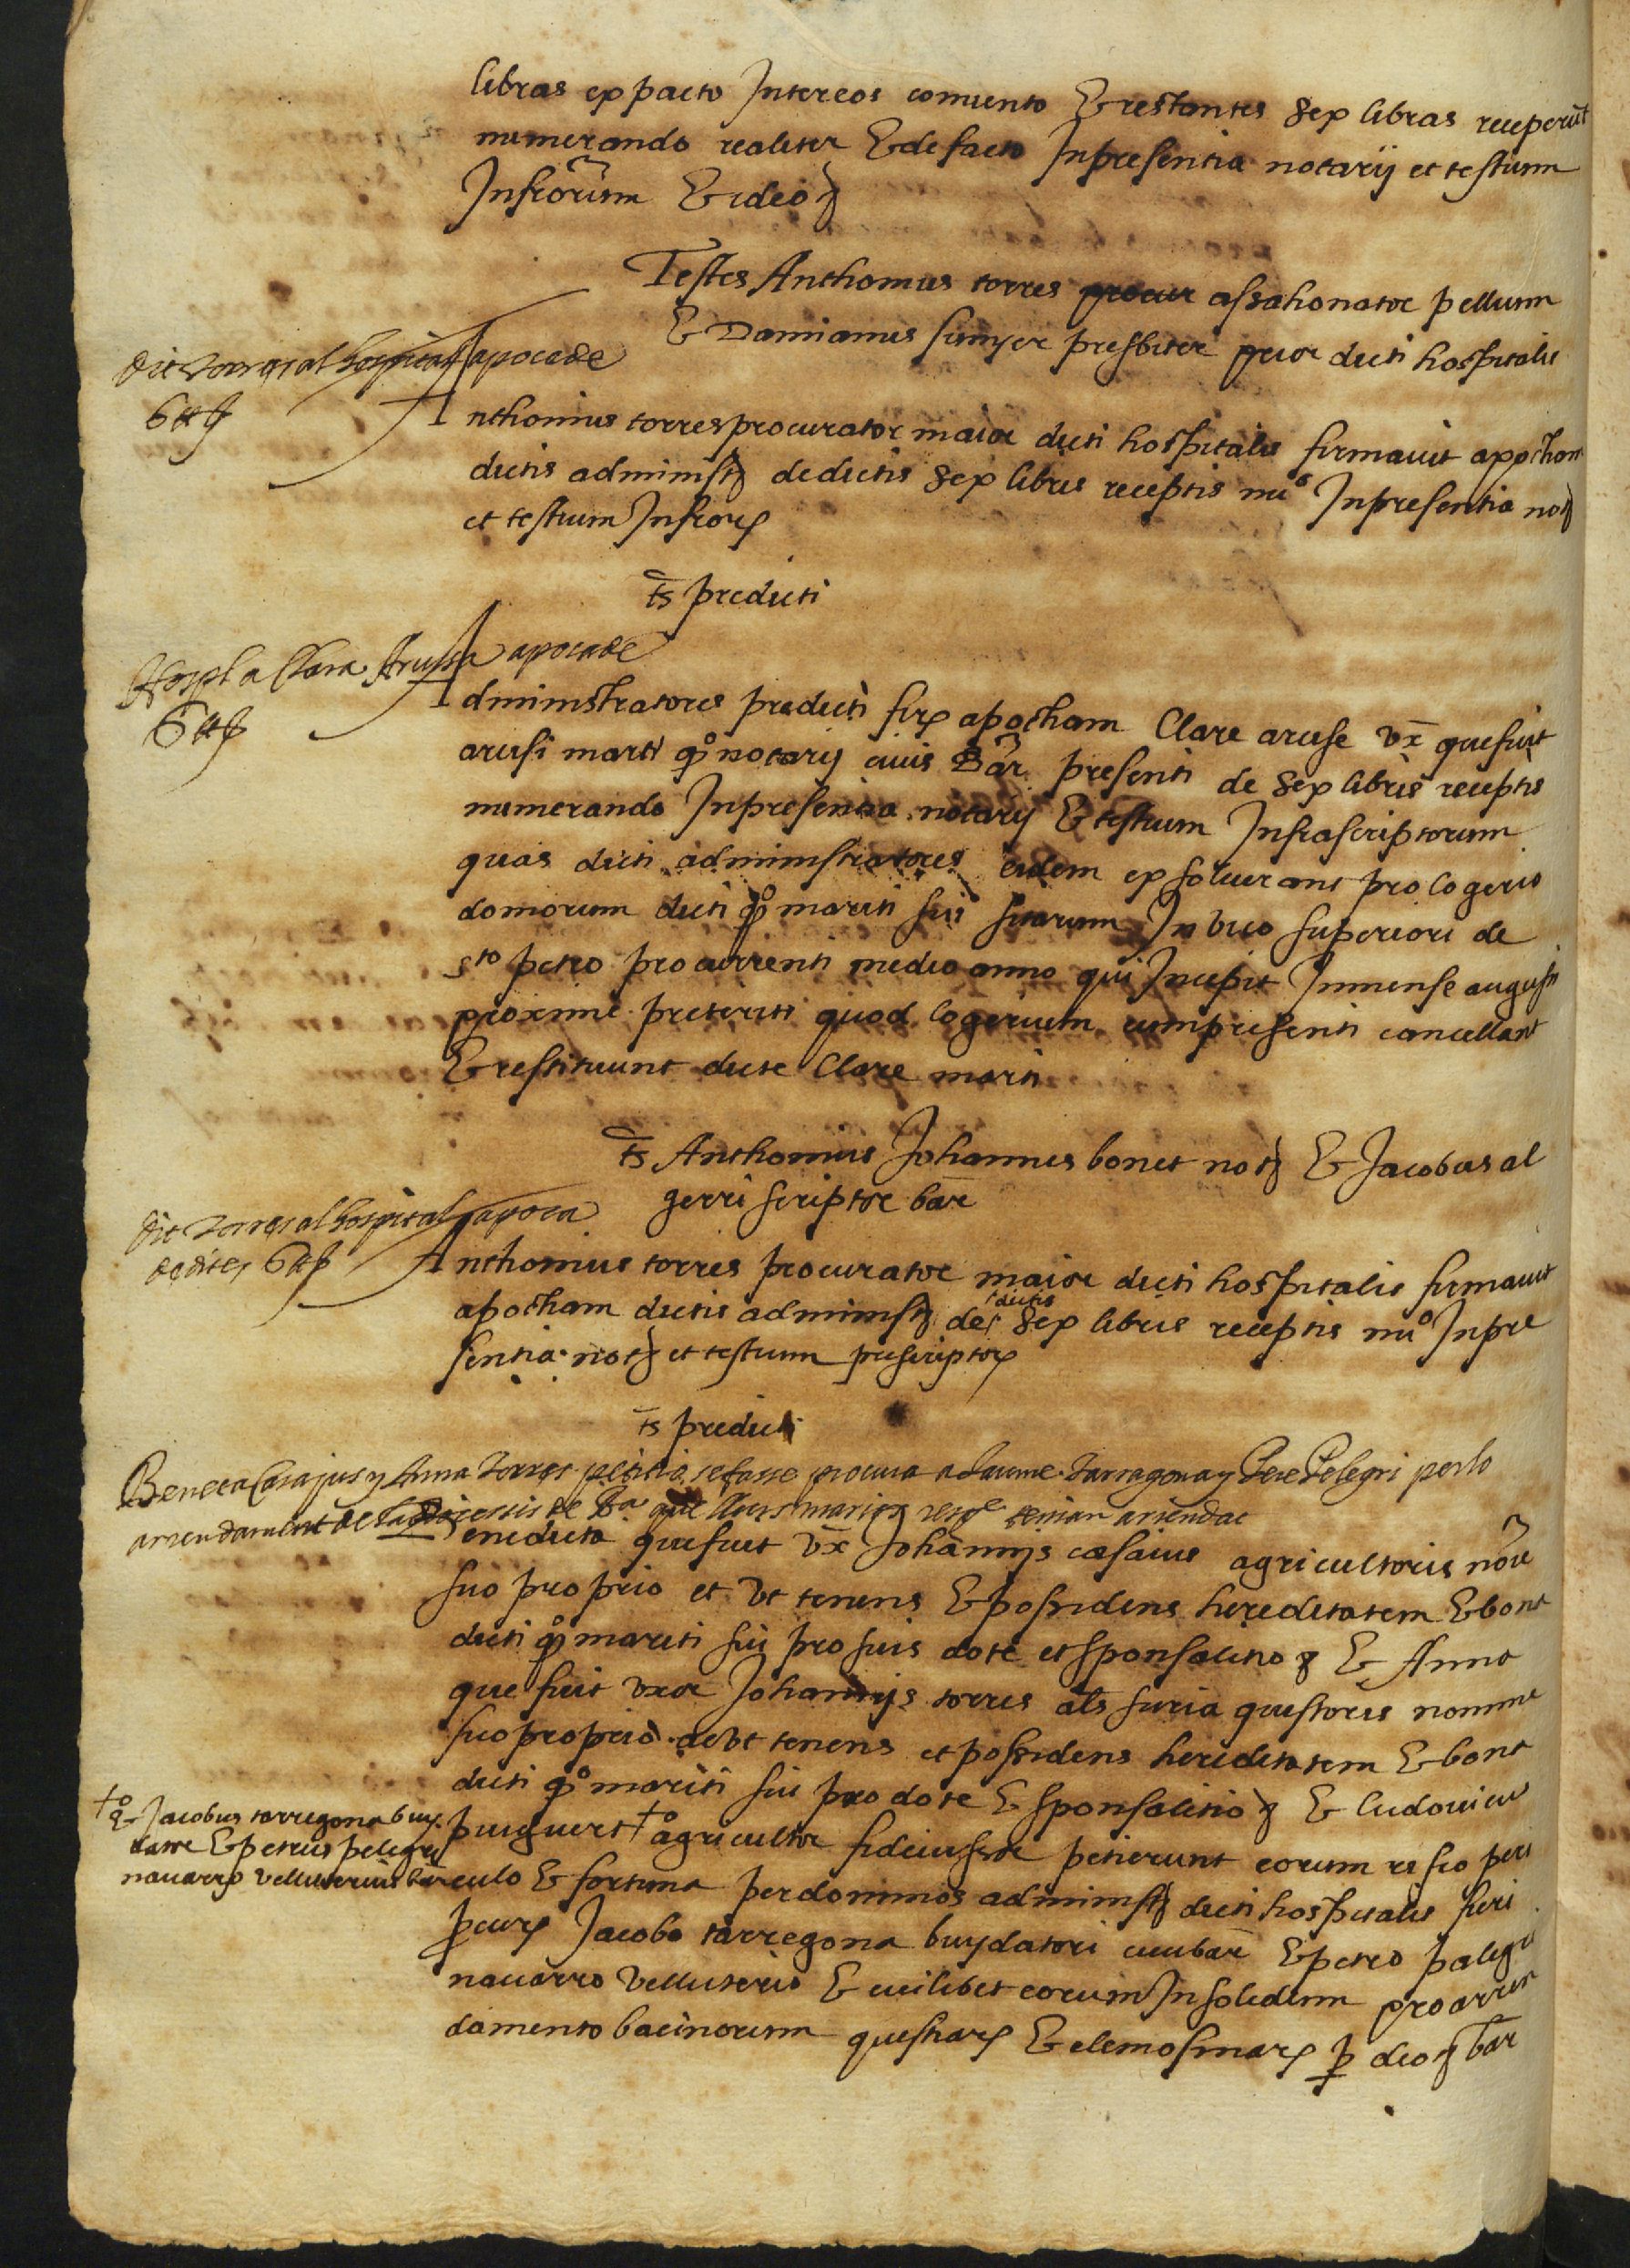 libras ex pacto Inter eos conuento Et restantes Sex libras receperũt
numerando realiter Et de facto In presentia notarij et testium
Infrõrum Et ideo
Testes Anthonius torres assahonator pellium
Et Damianus presbiter prior dicti hospitalis
Dit torres al hospital apoca de
6 ll
Anthonius torres procurator maior dicti hospitalis firmauit apocham
dictis administ de dictis Sex libris receptis nuº In presentia not
et testium Infror
ts̃ predicti
Hospl a Clara Arussa apoca de
6 ll
Administratores predicti fir apocham Clare aruse vx̃ que fuit
arusi marti qº notarij ciuis Bar̃ presenti de Sex libris receptis
numerando In presentia notarij Et testium Infrascriptorum
quas dicti administratores eidem exsoluerant pro logerio
domorum dicti qº mariti sui sitarum In vico superiori de
Sto petro pro currenti medio anno qui Incepit In mense augusti
proxime preteriti quod logerium cum presenti cancellant
Et restituunt dicte Clare marti
ts̃ Anthonius Johannes bonet not Et Jacobus al
gerri scriptor bar̃
Dit torres al hospital apoca
de dites 6 ll
Anthonius torres procurator maior dicti hospitalis firmauit
apocham dictis administ de dictis Sex libris receptis nuº In pre
sentia not et testium prescriptor
ts̃ predicti
Beneta Casajus y Anna Torres se fasse procura a Jaume Tarragona y Pere Pelegri per lo
arrendament de de Ba que llurs marits tenian arrendat
Benedicta que fuit vx̃ Johannijs casaius agricultoris nõie
suo proprio et vt tenens Et possidens hereditatem Et bona
dicti qº mariti sui pro suis dote et sponsalitio Et Anna
que fuit vxor Johannijs torres als̃ furia questoris nomine
suo proprio ac vt tenens et possidens hereditatem Et bona
dicti qº mariti sui pro dote Et sponsalitio Et ludouicus
puiguert † agricultor fideiussor petierunt eorum resico peri
† Et Jacobus tarregona buy
dator Et petrus pelegri
nauarro velluterius bar̃
culo Et fortuna per dominos administ dicti hospitalis fieri
pcur Jacobo tarregona buydatori ciui bar̃ Et petro palegri
nauarro velluterio Et cuilibet eorum In solidum pro arren
damento bacinorum questar Et elemosinar p dioc bar̃